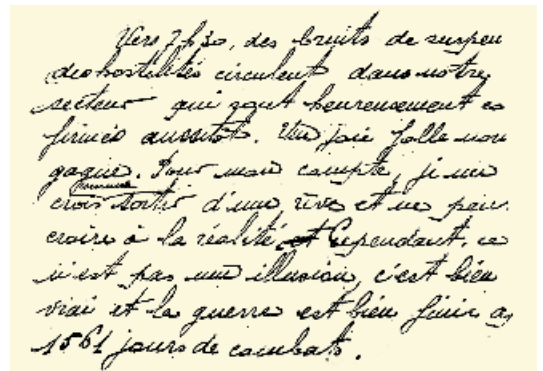 Vers 7 h 30, des bruits de suspen
des hostilités circulent dans notre
secteur qui sont heureusement co
firmés aussitôt. Une joie folle nou
gagne. Pour mon compte, je me
crois comme sortir d'une rêve et ne peu
croire à la réalité et Cependant, ce
n'est pas une illusion, c'est bien
vrai et la guerre est bien finie ap
1561 jours de combats.